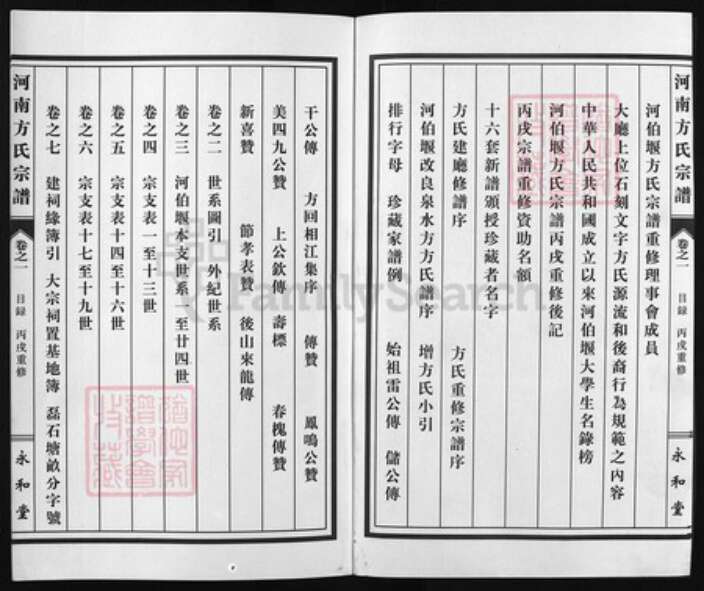 河南方氏宗譜
卷之一
目錄
丙戌重修
永和堂
河伯堰方氏宗譜重修理事會成員
大廳上位石刻文字方氏源流和後裔行為規範之內容
中華人民共和國成立以來河伯堰大學生名錄榜
河伯堰方氏宗譜丙戌重修後記
丙戌宗譜重修資助名額
十六套新譜頒授珍藏者名字
方氏建廳修譜序 方氏重修宗譜序
河伯堰改良泉水方方氏譜序 增方氏小引
排行字母 珍藏家譜例 始祖雷公傳 儲公傳
干公傳 方回相江集序 傳贊 鳳鳴公贊
美四九公贊 上公欽傳 壽標 春槐傳贊
新喜贊 節孝表贊 後山來龍傳
卷之二 世系圖引 外紀世系
卷之三 河伯堰本支世系 至廿四世
卷之四 宗支表一至十三世
卷之五 宗支表十四至十六世
卷之六 宗支表十七至十九世
卷之七 建祠緣簿引 大宗祠置基地簿 磊石塘畝分字號
河南方氏宗譜
卷之一
目錄
丙戌重修
永和堂
FamilySearch